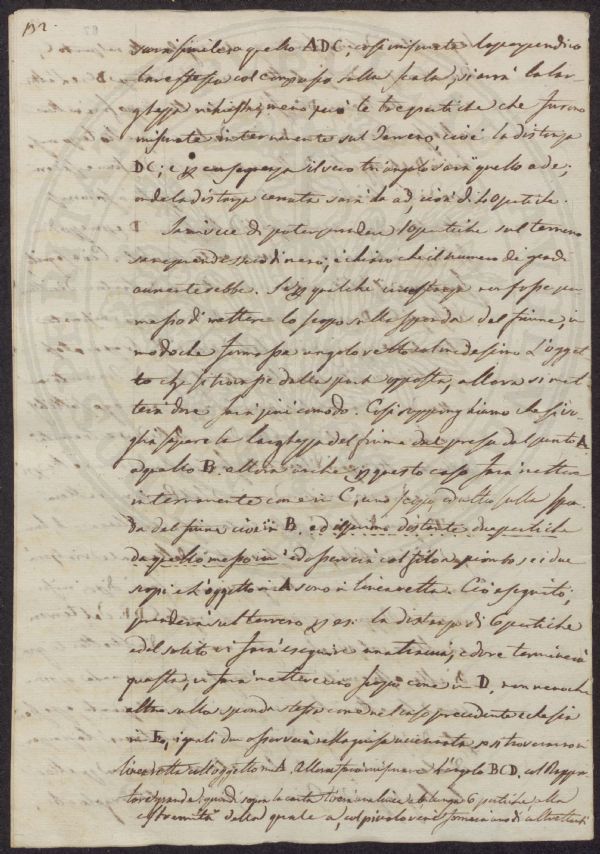 192.
sarà simile a quello ADC; così misurata la perpendico
lare stessa col compasso sulla scala, si avrà la lar
ghezza richiesta, meno però le tre pertiche che furono
misurate internamente sul Terreno, cioè la distanza
DC; e p conseguenza il vero triangolo sarà quello ade;
onde la distanza cercata sarà da ad, cioè di 40 pertiche.
Se in vece di poter prendere 10 pertiche sul terreno
se ne prende di meno, è chiaro che il numero dei gradi
aumenterebbe. Se p qualche circostanza non fosse per
messo di mettere lo scopo sulla sponda del fiume, in
modo che formasse angolo retto col medesimo L'ogget
to che si trovasse dalla parte opposta, allora si met
terà dove sarà più comodo. Così supponghiamo che si vo
glia sapere la larghezza del fiume dal preso del punto A.
a quello B. allora anche p questo caso farà mettere
internamente come in C, uno scopo, ed altro sulla spon
da del fiume cioè in B. ed il primo distante due pertiche
da quello messo in ed osserverà col filo a piombo se i due
scopi e l'oggetto in A sono in linea retta. Ciò eseguito,
prenderà sul terreno p es: la distanza di 6 pertiche
e del subito vi farà eseguire una traccia, e dove terminerà
questa, vi farà mettere uno scopo come in D. non meno che
altro sulla sponda stessa come nel caso precedente e che sia
in E, i quali due osserverà nella guisa accennata se si troveranno in
linea retta coll'oggetto in A. Allora farà misurare l'angolo BCD. col Rappor
tore grande e quindi sopra la carta tirerà una linea eh lunga 6 pertiche alla
estremità della quale a, col piccolo verrà formare uno di altrettanti